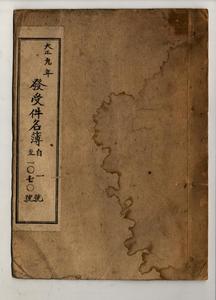 大正九年
發受件名簿
自一號
至一〇七〇號